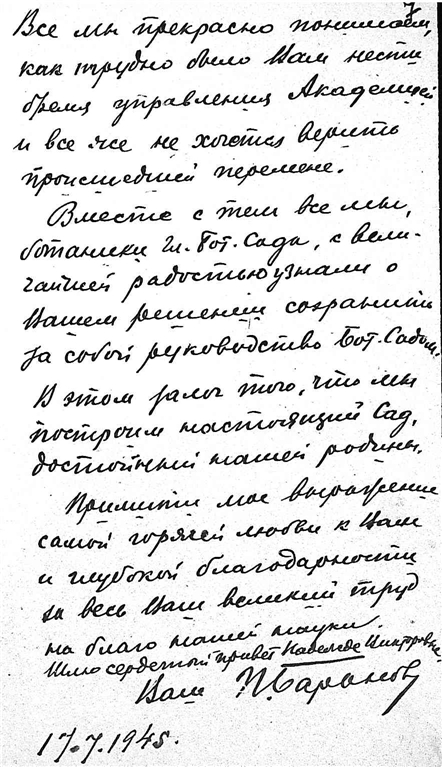 Все мы прекрасно понимаем,
как трудно было Вам нести
бремя управления Академией
и все же не хочется верить
происшедшей перемене.
Вместе с тем все мы,
ботаники Гл. Бот. Сада, с вели-
чайшей радостью узнали о
Вашем решении сохранить
за собой руководство Бот. Садом.
В этом залог того, что мы
построим настоящий Сад,
достойный нашей родины.
Примите мое выражение
самой горячей любви к Вам
и глубокой благодарности
за весь Ваш великий труд
на благо нашей науки.
Шлю сердечный привет Надежде Викторовне.
Ваш П. Баранов
17.7.1945.